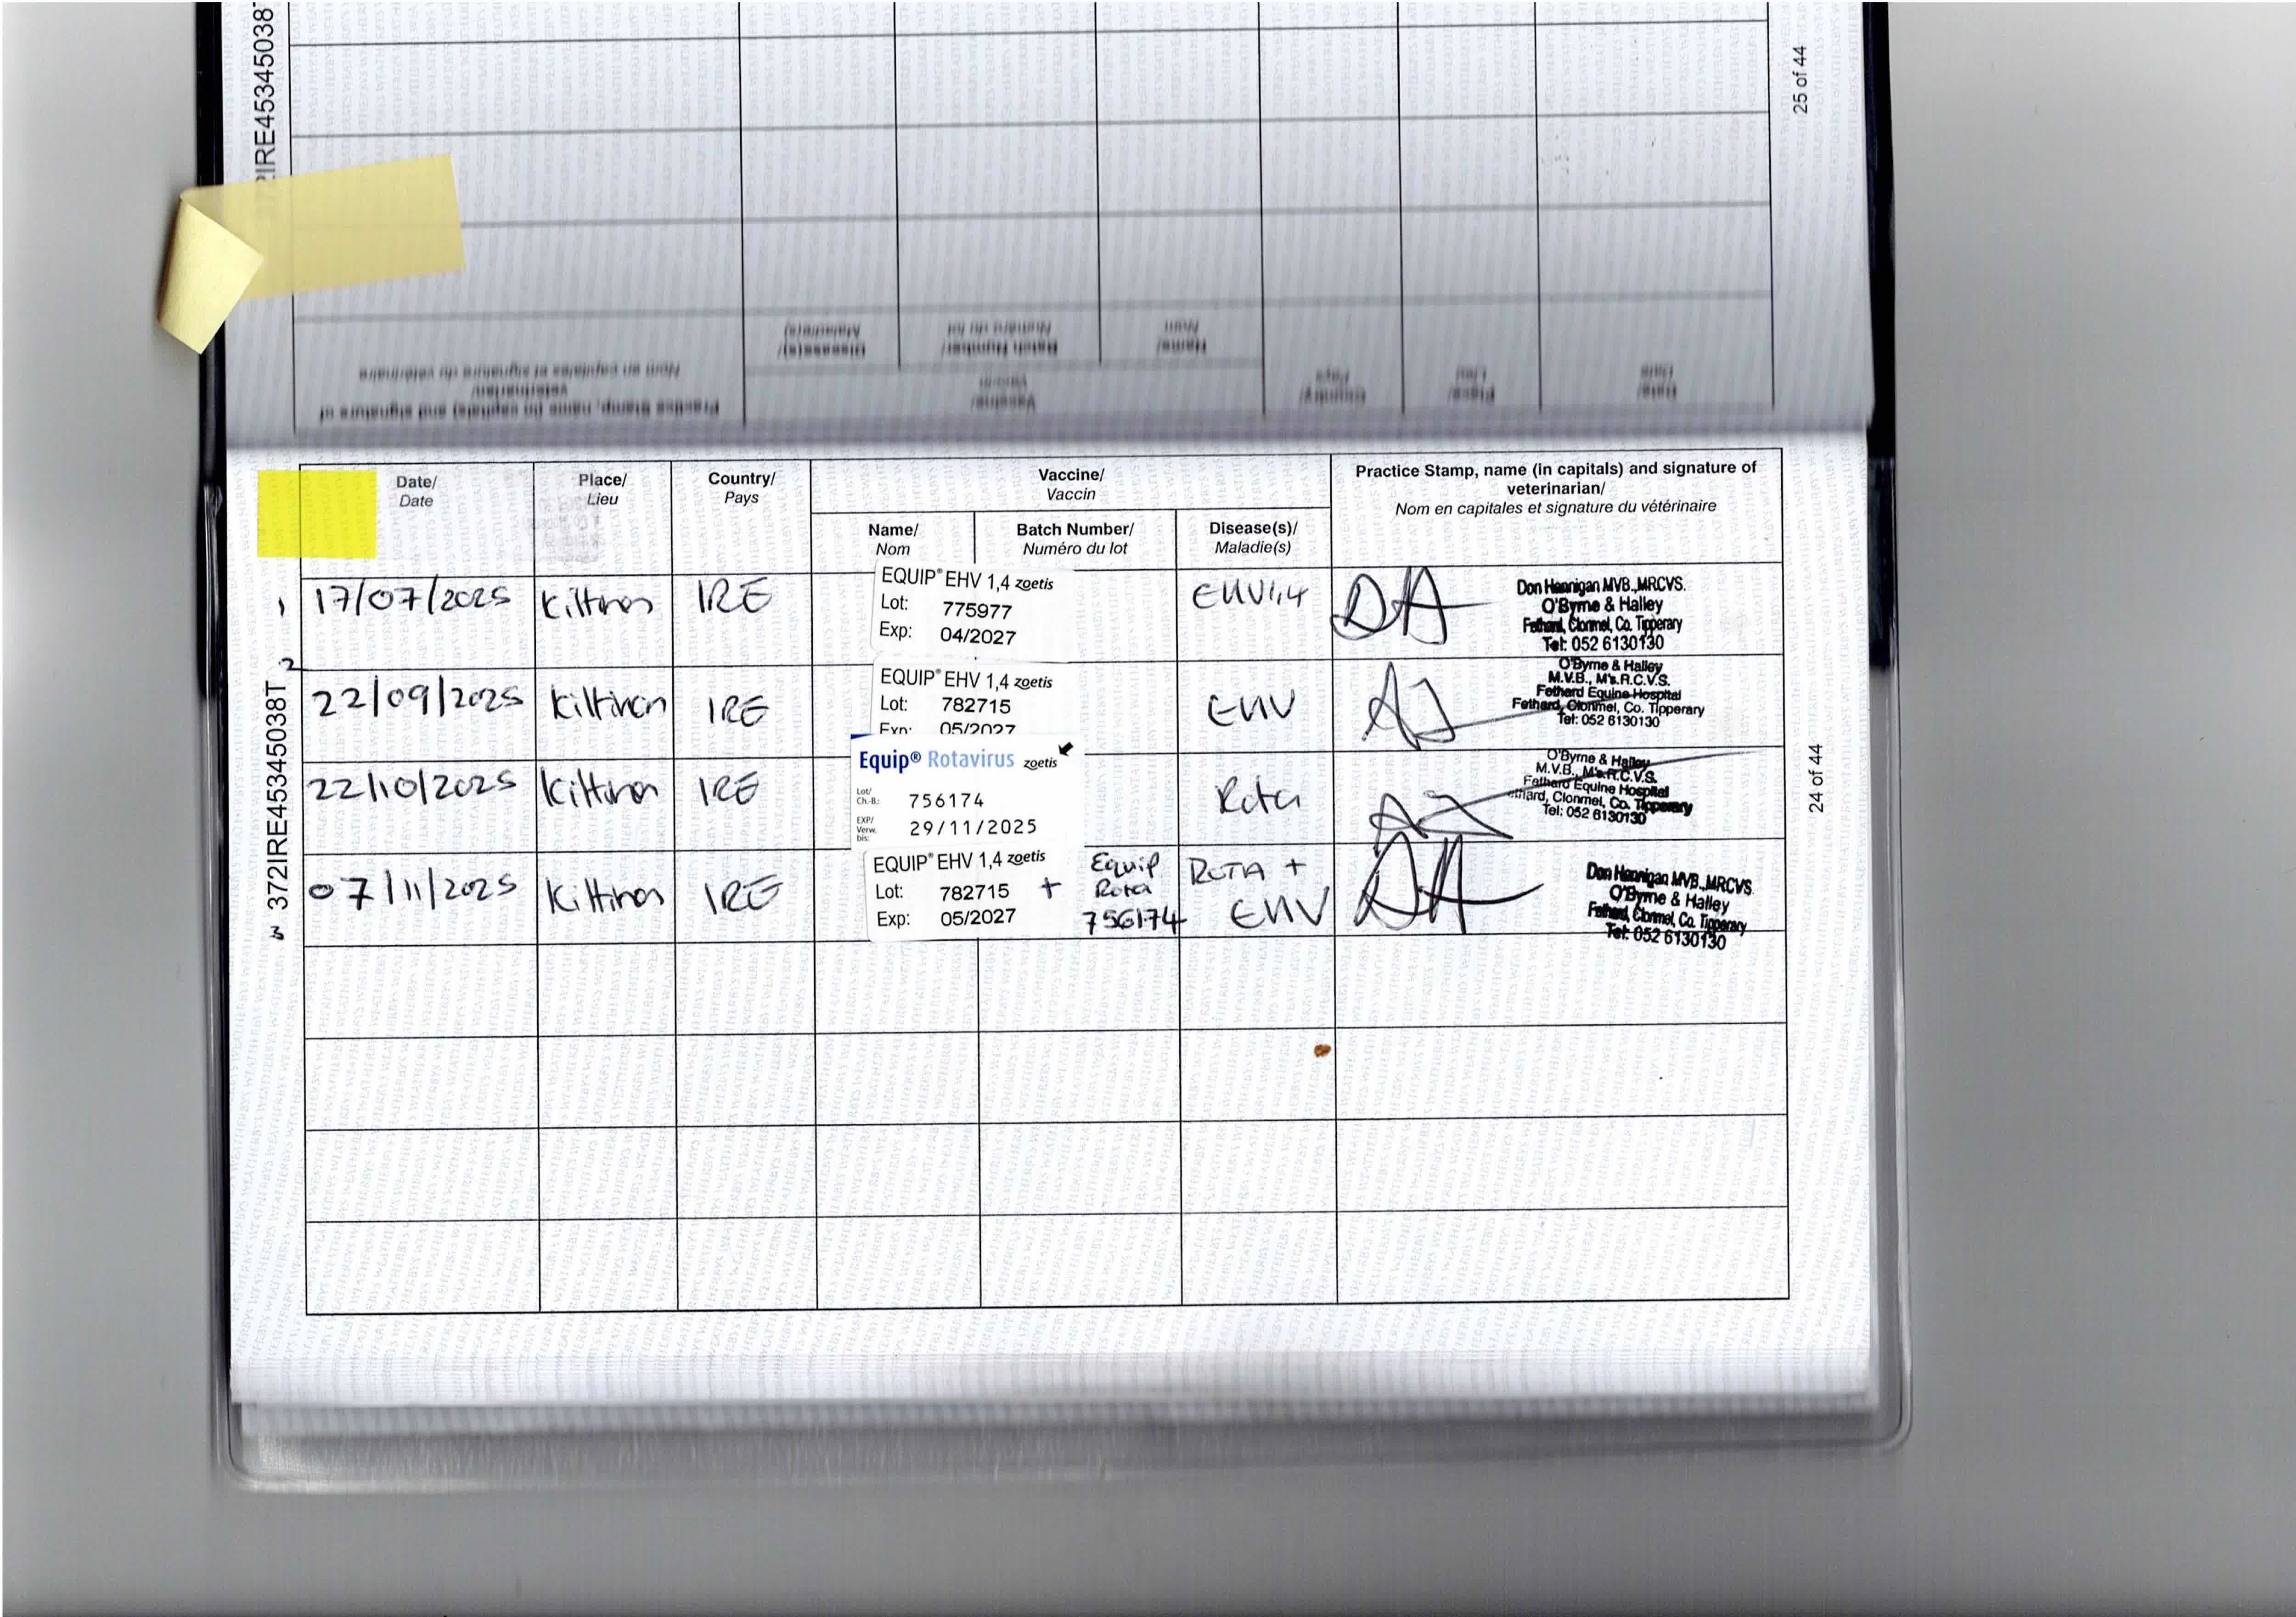 372IRE45345038T
25 of 44
Practice Stamp, name (in capitals) and signature of
veterinarian/
Nom en capitales et signature du vétérinaire
Vaccine/
Vaccin
Disease(s)/
Maladie(s)
Batch Number/
Numéro du lot
Name/
Nom
Country/
Pays
Place/
Lieu
Date/
Date
Date/
Date
Place/
Lieu
Country/
Pays
Vaccine/
Vaccin
Name/
Nom
Batch Number/
Numéro du lot
Disease(s)/
Maladie(s)
Practice Stamp, name (in capitals) and signature of
veterinarian/
Nom en capitales et signature du vétérinaire
1
17/07/2025
Kiltinan
IRE
EQUIP® EHV 1,4 zoetis
Lot: 775977
Exp: 04/2027
EHV1,4
DH
Don Hannigan MVB.,MRCVS.
O'Byrne & Halley
Fethard, Clonmel, Co. Tipperary
Tel: 052 6130130
2
22/09/2025
Kiltinan
IRE
EQUIP® EHV 1,4 zoetis
Lot: 782715
Exp: 05/2027
EHV
O'Byrne & Halley
M.V.B., M's.R.C.V.S.
Fethard Equine Hospital
Fethard, Clonmel, Co. Tipperary
Tel: 052 6130130
22/10/2025
Kiltinan
IRE
Equip® Rotavirus zoetis
Lot/
Ch.-B.: 756174
EXP/
Verw.
bis: 29/11/2025
Rota
O'Byrne & Halley
M.V.B., M's.R.C.V.S.
Fethard Equine Hospital
ethard, Clonmel, Co. Tipperary
Tel: 052 6130130
3
07/11/2025
Kiltinan
IRE
EQUIP® EHV 1,4 zoetis
Lot: 782715
Exp: 05/2027
+
Equip
Rota
756174
ROTA +
EHV
DH
Don Hannigan MVB.,MRCVS.
O'Byrne & Halley
Fethard, Clonmel, Co. Tipperary
Tel: 052 6130130
372IRE45345038T
24 of 44